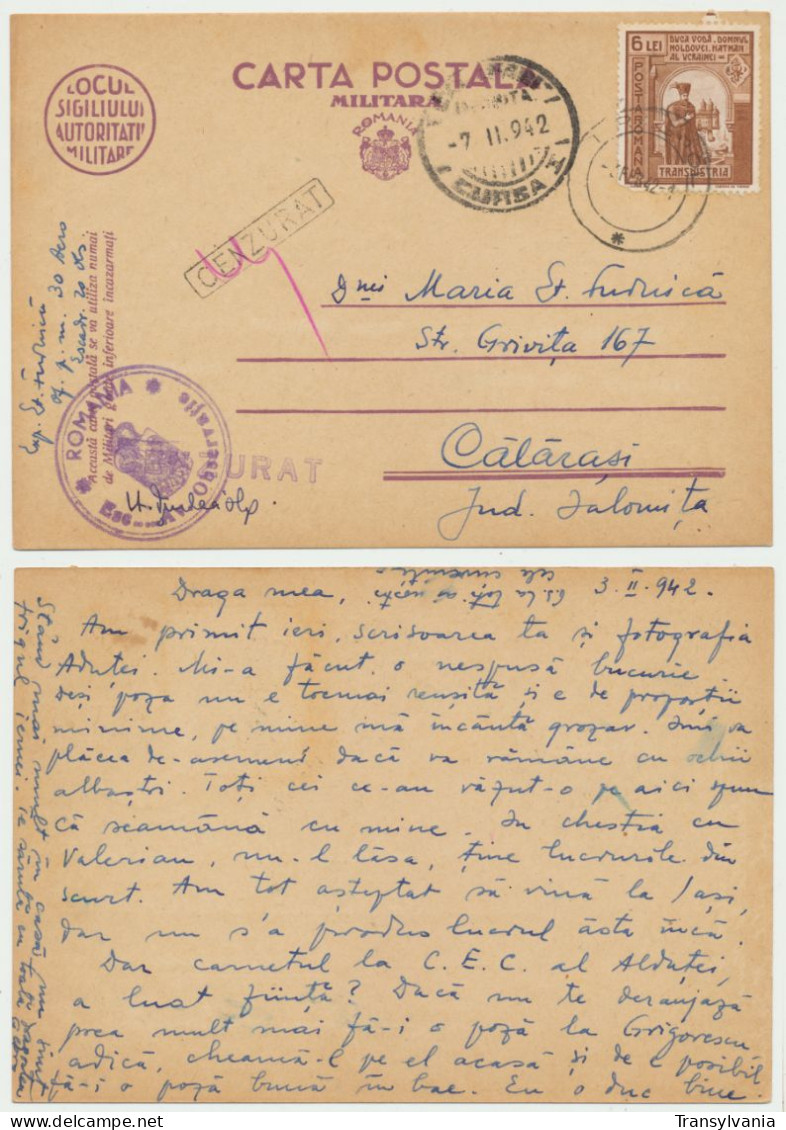 LOCUL
SIGILIULUI
AUTORITATII
MILITARE
CARTA POSTALA
MILITARA
ROMANIA
-7 II.942
CURSA
6 LEI
DUCA VODĂ, DOMNUL
MOLDOVEI, HATMAN
AL UCRAINEI
POSTA ROMANA
TRANSNISTRIA
CENZURAT
Această carte poștală se va utiliza numai
de Militari grade inferioare încazarmați
Exp. St. Tudnică
of. p. m. 30 Aero
Escadr. 20 Obs.
Dnei Maria St. Tudnică
Str. Grivița 167
Călărași
Jud. Ialomița
ROMANIA
Observație
URAT
Draga mea,
3. II. 942.
Am primit ieri, scrisoarea ta și fotografia
Aduței. Mi-a făcut o nespusă bucurie
deși poza nu e tocmai reușită și e de proporții
minime, pe mine mă încântă grozav. Imi va
plăcea de-asemeni dacă va rămâne cu ochii
albaștri. Toți cei ce-au văzut-o pe aici spun
că seamănă cu mine. In chestia cu
Valerian, nu-l lăsa, ține lucrurile din
scurt. Am tot așteptat să vină la Iași,
dar nu s'a produs lucrul ăsta încă.
Dar carnetul la C.E.C. al Alduței,
a luat ființă? Dacă nu te deranjază
prea mult mai fă-i o poză la Grigorescu
adică, cheamă-l pe el acasă și de e posibil
fă-i o poză bună în bae. Eu o duc bine.
Stând mai mult în casă nu simt
frigul iernei. Te sărută cu toată
Transylvania